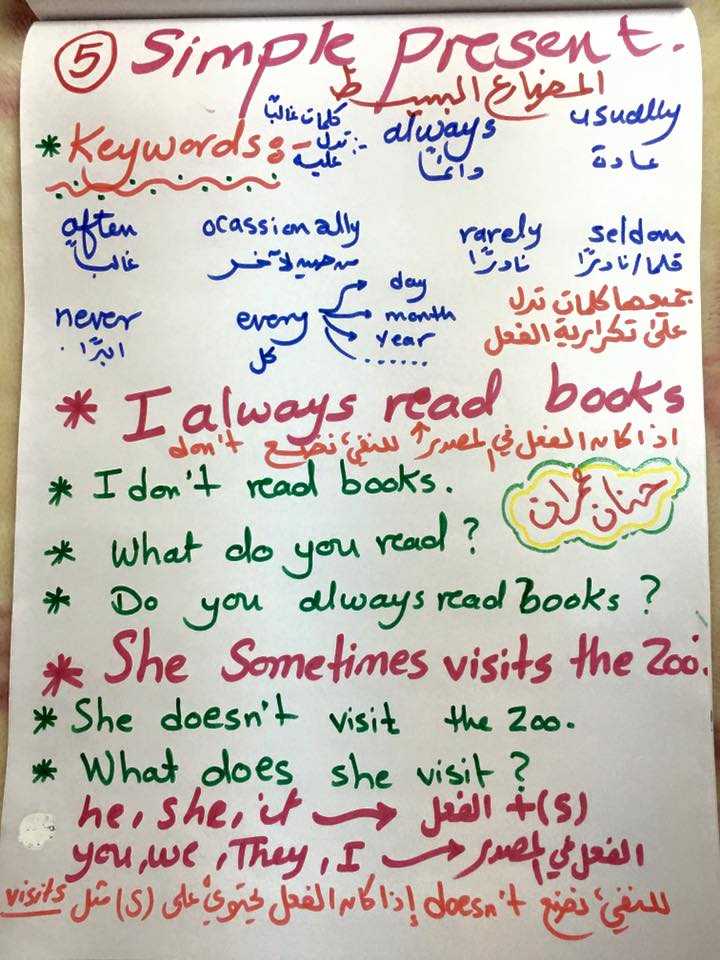 5 Simple Present.
المضارع البسيط
* Keywords: كلمات غالبًا تدل عليه :- always usually
دائمًا عادة
often ocassionally rarely seldom
غالبًا من حين لآخر نادرًا قلما/نادرًا
never every day month year ......
ابدًا. كل
جميعها كلمات تدل
على تكرارية الفعل
* I always read books
اذا كان الفعل في المصدر للنفي نضع don't
* I don't read books.
حنان عمران
* What do you read?
* Do you always read books?
* She Sometimes visits the Zoo.
* She doesn't visit the Zoo.
* What does she visit?
he, she, it → الفعل + (s)
you, we, They, I → الفعل في المصدر
للنفي نضع doesn't إذا كان الفعل يحتوي على (s) مثل visits